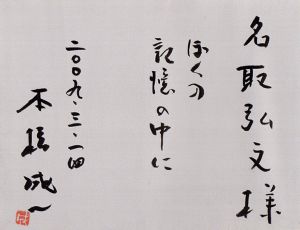 名取弘文様
ぼくの
記憶の中に
二〇〇九・三・一四
本橋成一